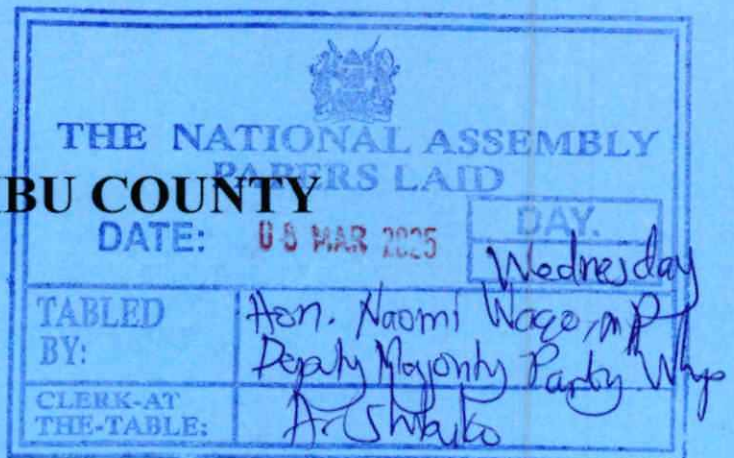 THE NATIONAL ASSEMBLY
PAPERS LAID
BU COUNTY
DATE: 05 MAR 2025 DAY.
Wednesday
TABLED BY: Hon. Naomi Waqo, MP
Deputy Majority Party Whip
CLERK-AT THE-TABLE: A. Shibuko